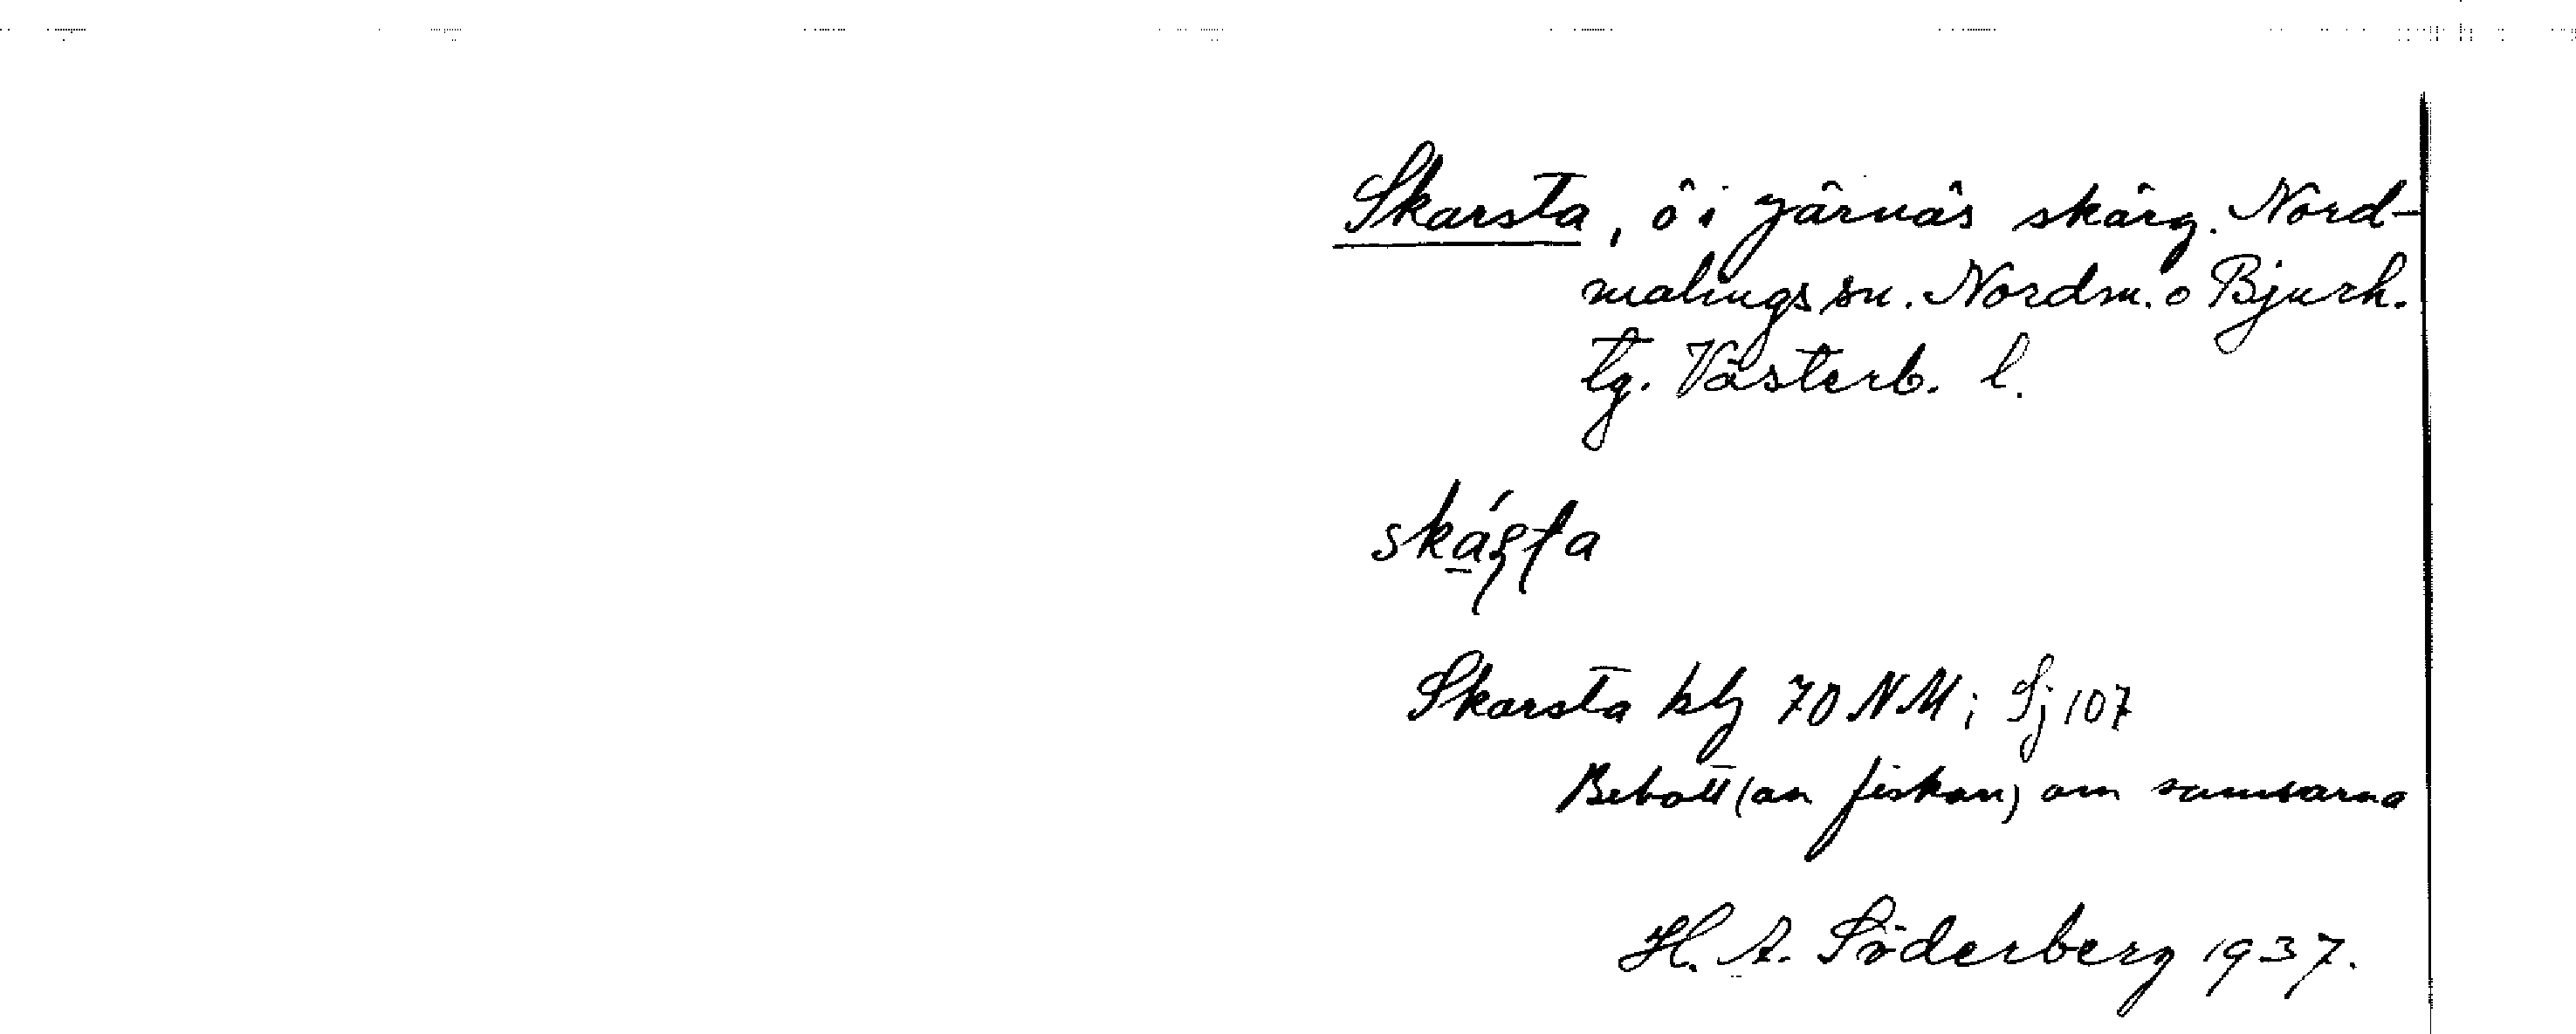 Skarsta, ö i Järnäs skärg. Nord-
malings sn. Nordm. o Bjurh.
tg. Västerb. l.
Skarsta kbl 70 NM; Sj 107
Bebott (av fiskare) om somrarna
H. A. Söderberg 1937.